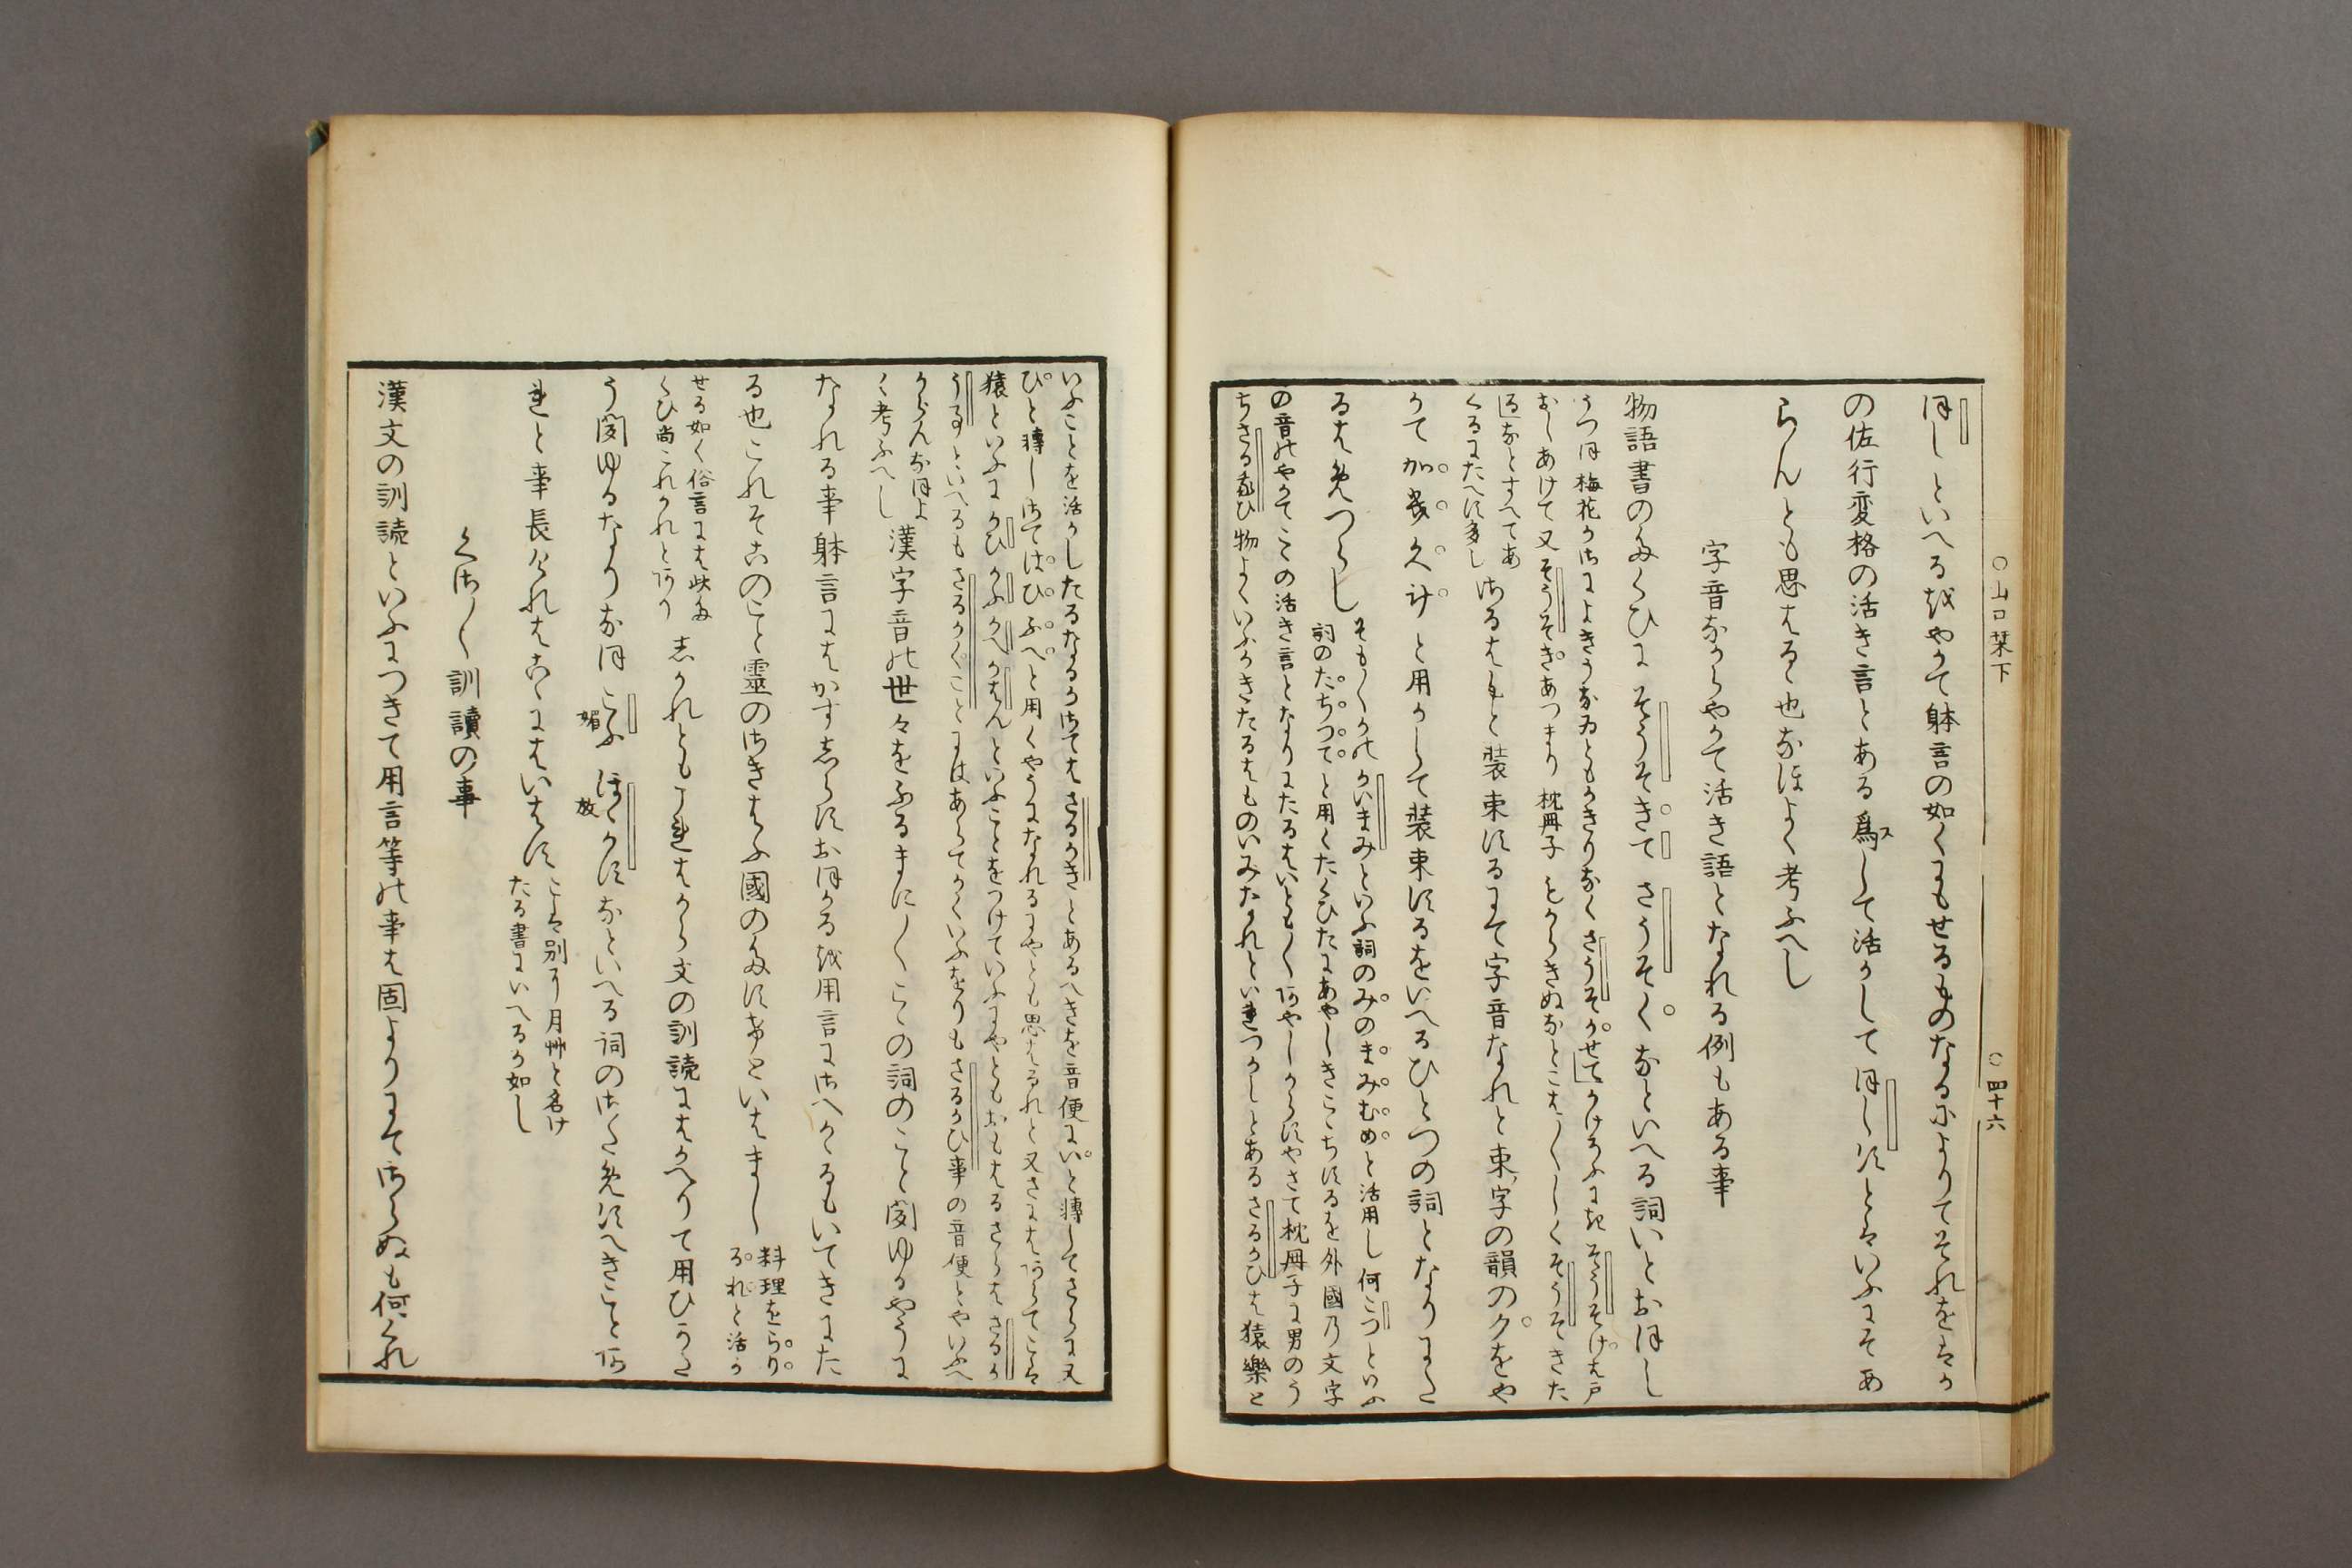 ほしといへるやかて躰言の如くにもせるものなるによりてそれをはか
の佐行変格の活き言とある爲スして活かしてほしすとはいふにそあ
らんとも思はるゝ也なほよく考ふへし
字音なからやかて活き語となれる例もある事
物語書のたくひに そうそきて さうそく なといへる詞いとおほし
うつほ梅花かさによきうなゐともかきりなく さうそかせて
おしあけて又そうそきあつまり 枕冊子
るなとすへてあ
くるにたへす多し
さるはもと装束するにて字音なれと束字の韻のクをや
かて 加幾久計 と用かして装束するをいへるひとつの詞となりにた
るはめつらし
そもそもかのかいまみといふ詞のみのまみむめと活用し何こつといふ
詞のたちつてと用くたくひたにあやしきこゝちするを外國乃文字
の音のやかてこゝの活き言となりにたるはいともいともあやしからすやさて枕冊子に男のう
ちさるかひ物よくいふかきたるはものいみたれといれつかしとあるさるかひは猿樂と
○山口栞下
○四十六
いふことを活かしたるなるかさてはさるかきとあるへきを音便にいと轉してさらに又
ひと轉しさてはひふへと用くやうになれるにやとも思はるれと又さにはあらてこは
猿といふにかひかふかへかはんといふことをつけていふにやともおもはるさらはさるか
うるといへるもさるかくことにはあらてかくいふをりもさるかひ事の音便とやいふへ
からんなほよ
く考ふへし
漢字音の世々をふるまにまにこゝの詞のこと聞ゆるやうに
なれる事躰言にはかすしらすおほかる用言にさへくるもいてきにた
る也これそこのこと靈のさきはふ國のたすけといはまし
料理をらり
るれと活か
せる如く俗言には此た
くひ尚これかれとあり
しかれともこれはから文の訓読にはかへりて用ひかた
う聞ゆるなりなほ こふ 媚 ほゝかす 放 なといへる詞のさためすへきことあ
れと事長けれはこゝにはいはす
こは別に月艸と名け
たる書にいへるか如し
くさくさ訓讀の事
漢文の訓読といふにつきて用言等の事は固よりにてさらぬも何くれ